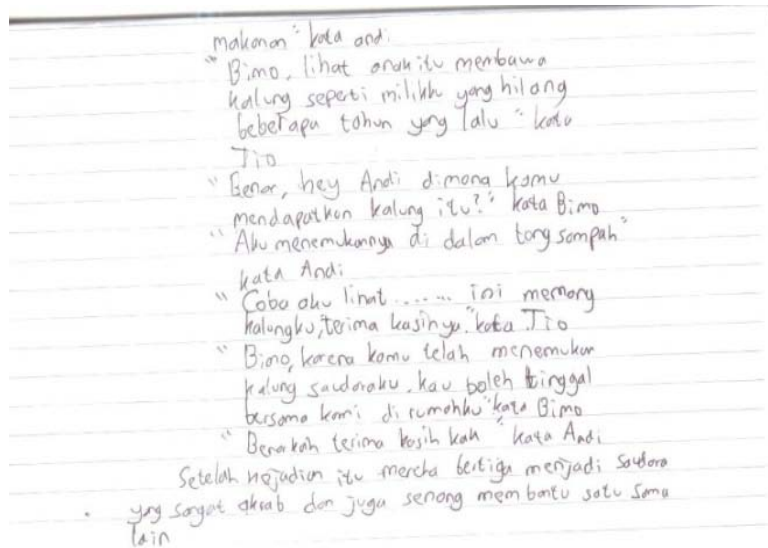 makanan" kata andi.
"Bimo, lihat anak itu membawa
kalung seperti milikku yang hilang
beberapa tahun yang lalu" kata
Tio
"Benar, hey Andi dimana kamu
mendapatkan kalung itu?" kata Bimo
"Aku menemukannya di dalam tong sampah"
kata Andi
"Coba aku lihat ....... ini memang
kalungku, terima kasih ya." kata Tio
"Bimo, karena kamu telah menemukan
kalung saudaraku, kau boleh tinggal
bersama kami di rumahku" kata Bimo
"Benarkah terima kasih kak" kata Andi
Setelah kejadian itu mereka bertiga menjadi saudara
yang sangat akrab dan juga senang membantu satu sama
lain